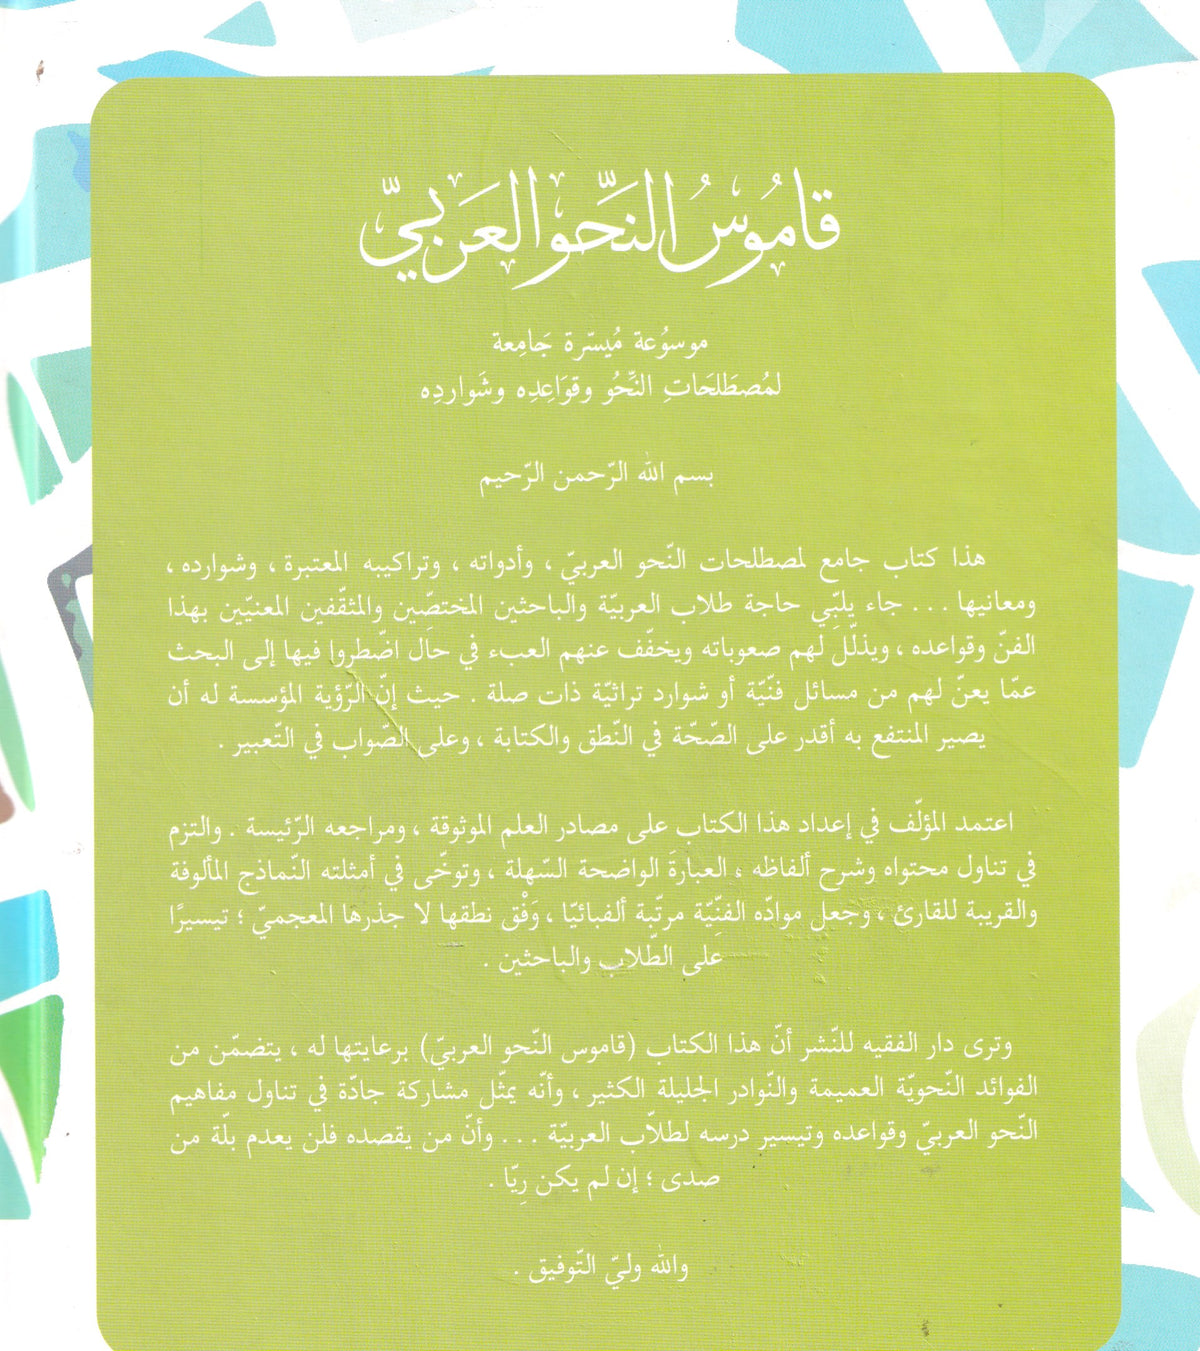 قامُوسُ النَّحو العَرَبيّ
موسوُعة مُيسّرة جَامِعة
لمُصطَلحَاتِ النَّحُو وقوَاعِدِه وشَواردِه
بسم الله الرّحمن الرّحيم
هذا كتاب جامع لمصطلحات النّحو العربيّ ، وأدواته ، وتراكيبه المعتبرة ، وشوارده ،
ومعانيها . . . جاء يلبّي حاجة طلاب العربيّة والباحثين المختصِّين والمثقّفين المعنيّين بهذا
الفنّ وقواعده ، ويذلّل لهم صعوباته ويخفّف عنهم العبء في حال اضّطروا فيها إلى البحث
عمّا يعنّ لهم من مسائل فنّيّة أو شوارد تراثيّة ذات صلة . حيث إنّ الرّؤية المؤسسة له أن
يصير المنتفع به أقدر على الصّحّة في النّطق والكتابة ، وعلى الصّواب في التّعبير .
اعتمد المؤلّف في إعداد هذا الكتاب على مصادر العلم الموثوقة ، ومراجعه الرّئيسة . والتزم
في تناول محتواه وشرح ألفاظه ، العبارةَ الواضحة السّهلة ، وتوخّى في أمثلته النّماذج المألوفة
والقريبة للقارئ ، وجعل موادّه الفنِّيّة مرتّبة ألفبائيّا ، وَفْق نطقها لا جذرها المعجميّ ؛ تيسيرًا
على الطّلاب والباحثين .
وترى دار الفقيه للنّشر أنّ هذا الكتاب (قاموس النّحو العربيّ) برعايتها له ، يتضمّن من
الفوائد النّحويّة العميمة والنّوادر الجليلة الكثير ، وأنّه يمثّل مشاركة جادّة في تناول مفاهيم
النّحو العربيّ وقواعده وتيسير درسه لطلاّب العربيّة . . . وأنّ من يقصده فلن يعدم بلّة من
صدى ؛ إن لم يكن رِيّا .
والله وليّ التّوفيق .